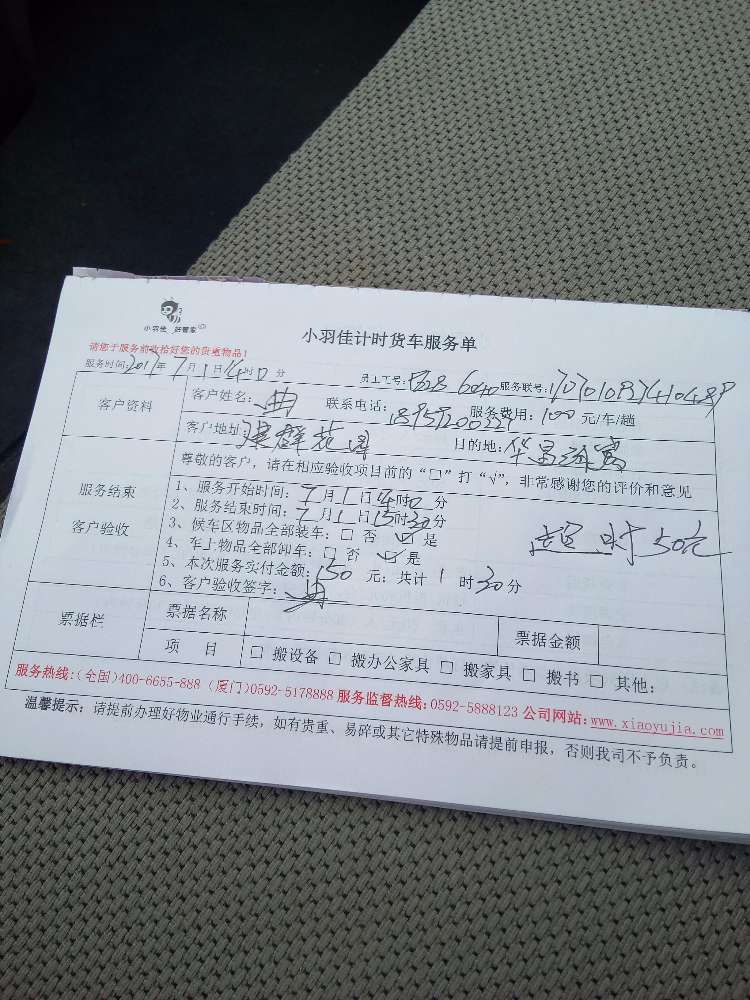 小羽佳 好管家
小羽佳计时货车服务单
请您于服务前收拾好您的贵重物品!
服务时间:2017年7月1日14时0分 员工工号: 6040 服务联号:
客户资料 客户姓名: 联系电话: 服务费用:100元/车/趟
客户地址:建群花园 目的地:华昌
服务结束 客户验收
尊敬的客户,请在相应验收项目前的“□”打“√”,非常感谢您的评价和意见
1、服务开始时间:7月1日14时0分
2、服务结束时间:7月1日15时30分
3、候车区物品全部装车:□ 否 ☑ 是
4、车上物品全部卸车:□ 否 ☑ 是
5、本次服务实付金额:150元:共计1时30分
6、客户验收签字:
超时50元
票据栏 票据名称 票据金额
项 目 □ 搬设备 □ 搬办公家具 □ 搬家具 □ 搬书 □ 其他:
服务热线:(全国)400-6655-888 (厦门)0592-5178888 服务监督热线:0592-5888123 公司网站:www.xiaoyujia.com
温馨提示:请提前办理好物业通行手续,如有贵重、易碎或其它特殊物品请提前申报,否则我司不予负责。